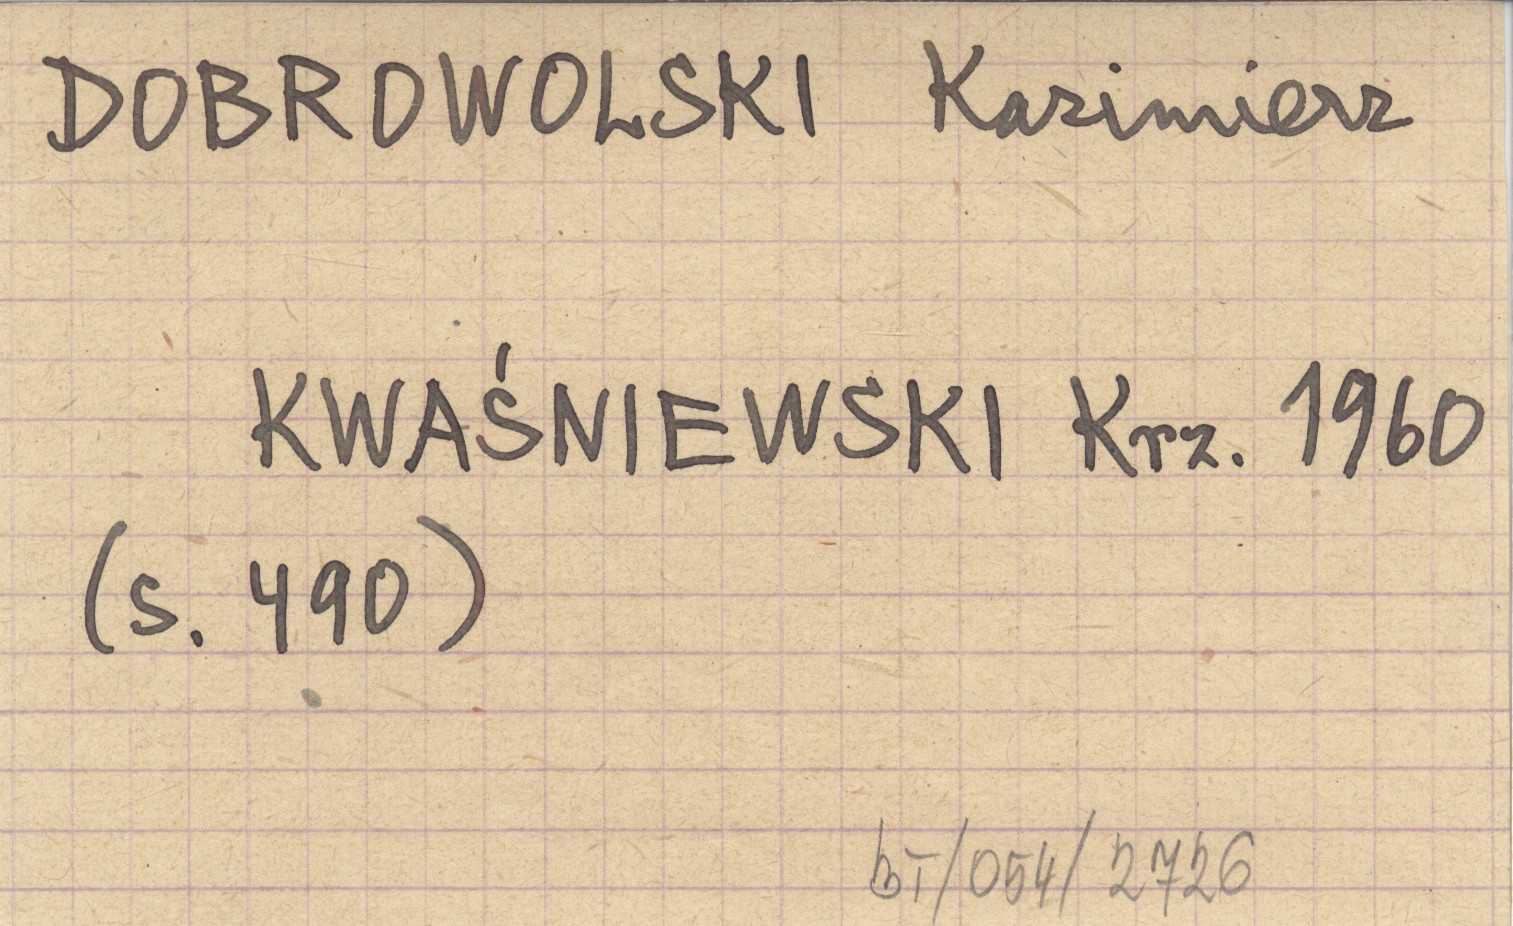 DOBROWOLSKI Kazimierz
KWAŚNIEWSKI Krz. 1960
(s. 490)
bT/054/2726